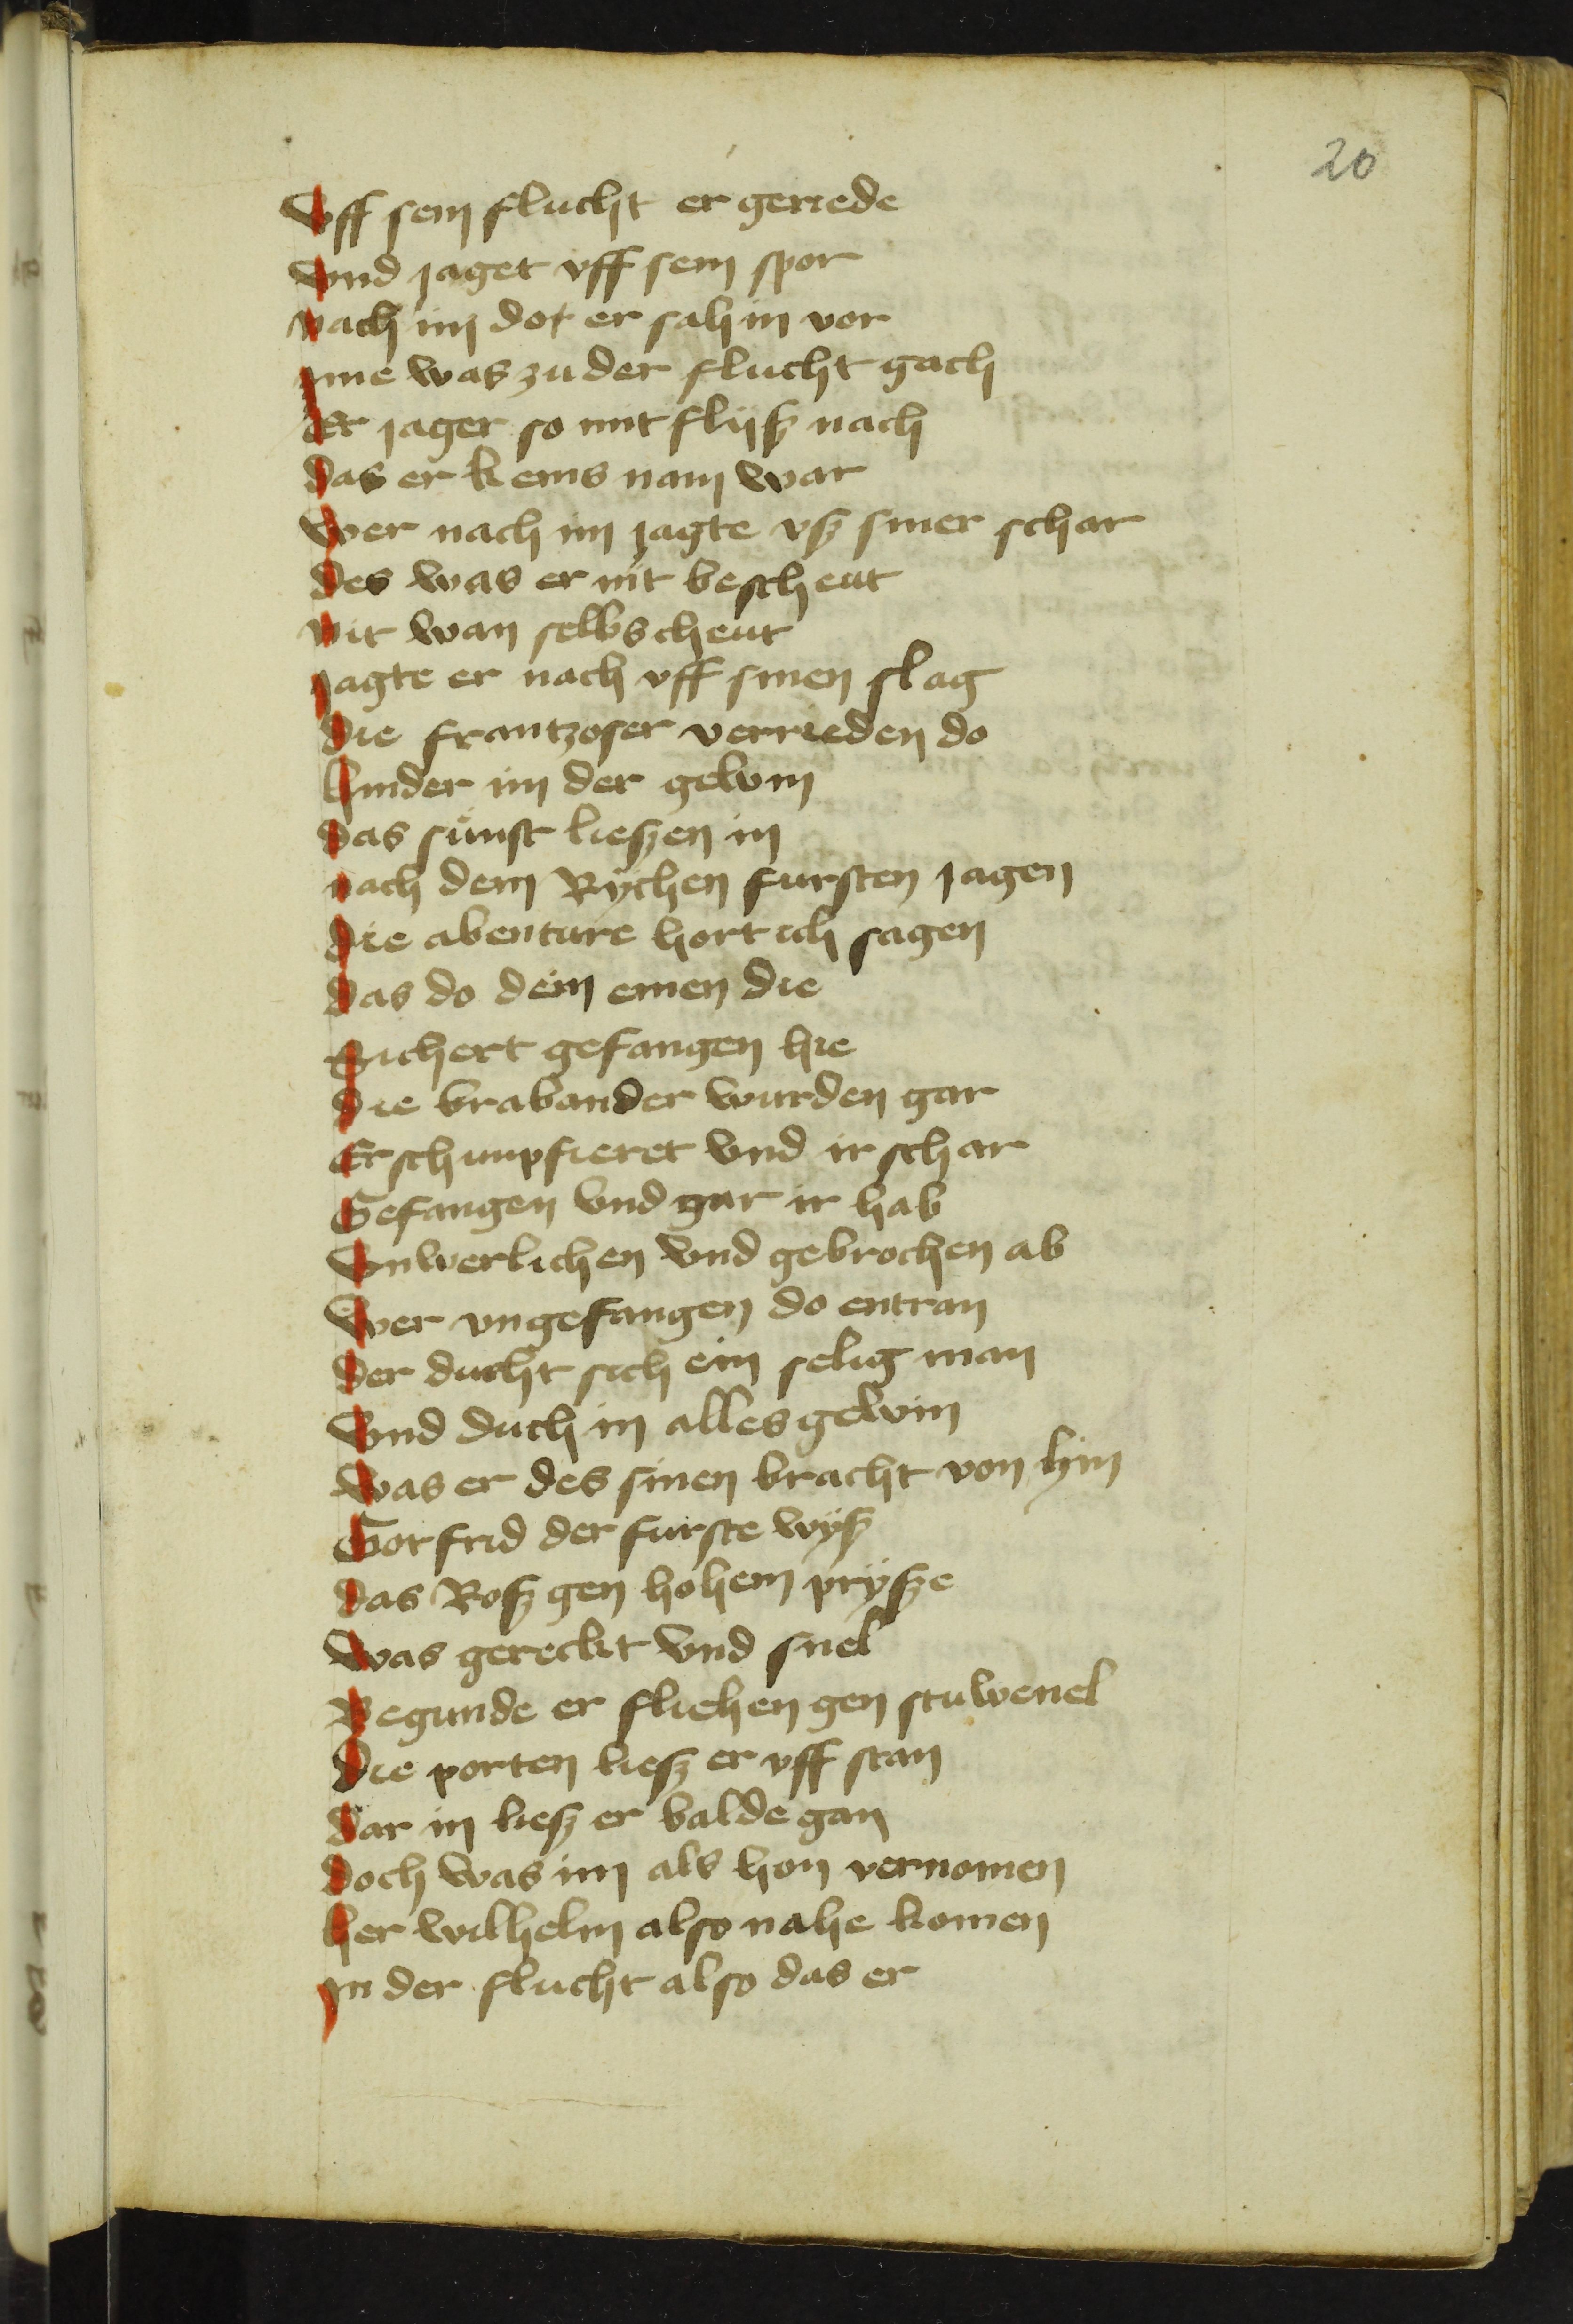 20
Vff sein flucht er geriede
Vnd jaget vff sein spor
Nach im dot er sah in vor
Ime was zu der flucht gach
Er jager so mit flijsz nach
Das er keins nam war
Wer nach im jagte vsz siner schar
Des was er nit bescheut
Nit wan selbscheut
Jagte er nach vff sinen slag
Die frantzoser verrieden do
Hinder im der gewin
Das sunst lieszen in
Nach dem Rychen fursten jagen
Die abenture hort ich sagen
Das do dem einen die
Sichert gefangen hie
Die brabander wurden gar
Er schunpfieret vnd ir schar
Gefangen vnd gar ir hab
Vnwerlichen vnd gebrochen ab
Wer vngefangen do entran
Der ducht sich ein selig man
Vnd duch in alles gewin
Was er des sinen bracht von hin
Gotfrid der furste wysz
Das Rosz gen hohem prysze
Was gereckt vnd snel
Begunde er fliehen gen stuwenel
Die porten liesz er vff stan
Dar in liesz er balde gan
Doch was im als hon vernomen
Her wilhelm also nahe komen
In der flucht also das er